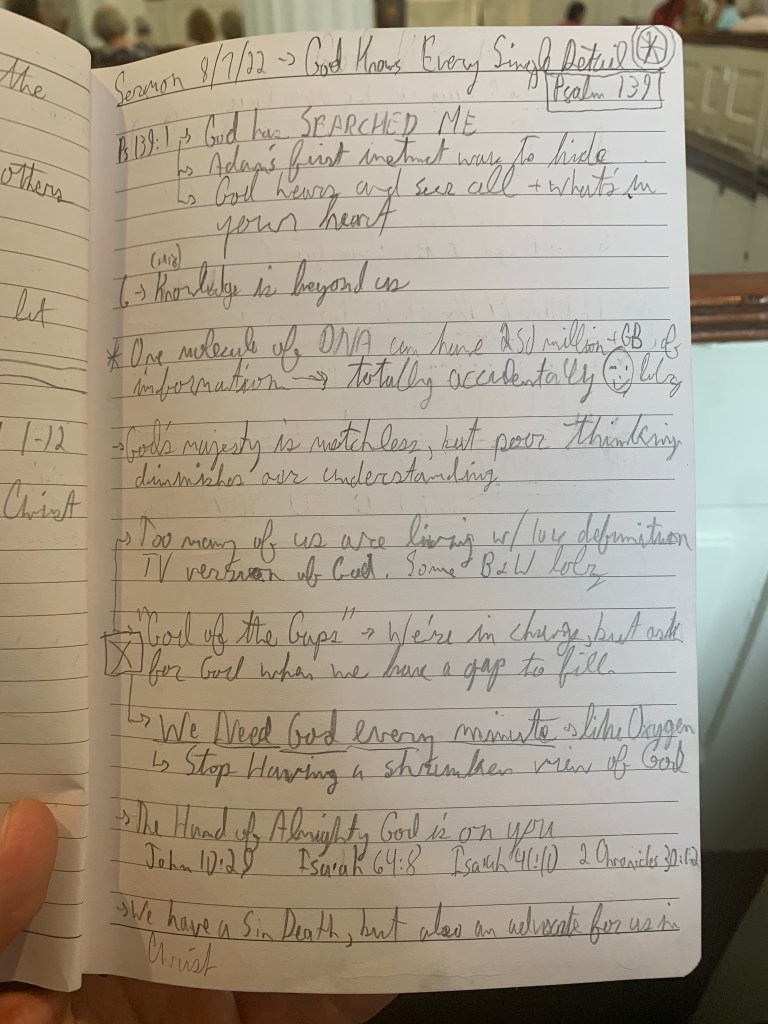 the
others
let
1-12
Christ
Sermon 8/7/22 → God Knows Every Single Detail *
Psalm 139
Ps 139:1 → God has SEARCHED ME
↳ Adam's first instinct was to hide
↳ God hears and sees all + what's in
your heart
(His)
↳ Knowledge is beyond us
* One molecule of DNA can have 250 million + GB of
information → totally accidentally lolz
→ God's majesty is matchless, but poor thinking
diminishes our understanding
→ Too many of us are living w/ low definition
TV version of God. Some B&W lolz
→ "God of the Gaps" → We're in charge, but ask
for God when we have a gap to fill.
↳ We Need God every minute → like Oxygen
↳ Stop Having a shrunken view of God
→ The Hand of Almighty God is on you
John 10:29 Isaiah 64:8 Isaiah 41:10 2 Chronicles 30:12
→ We have a Sin Death, but also an advocate for us in
Christ